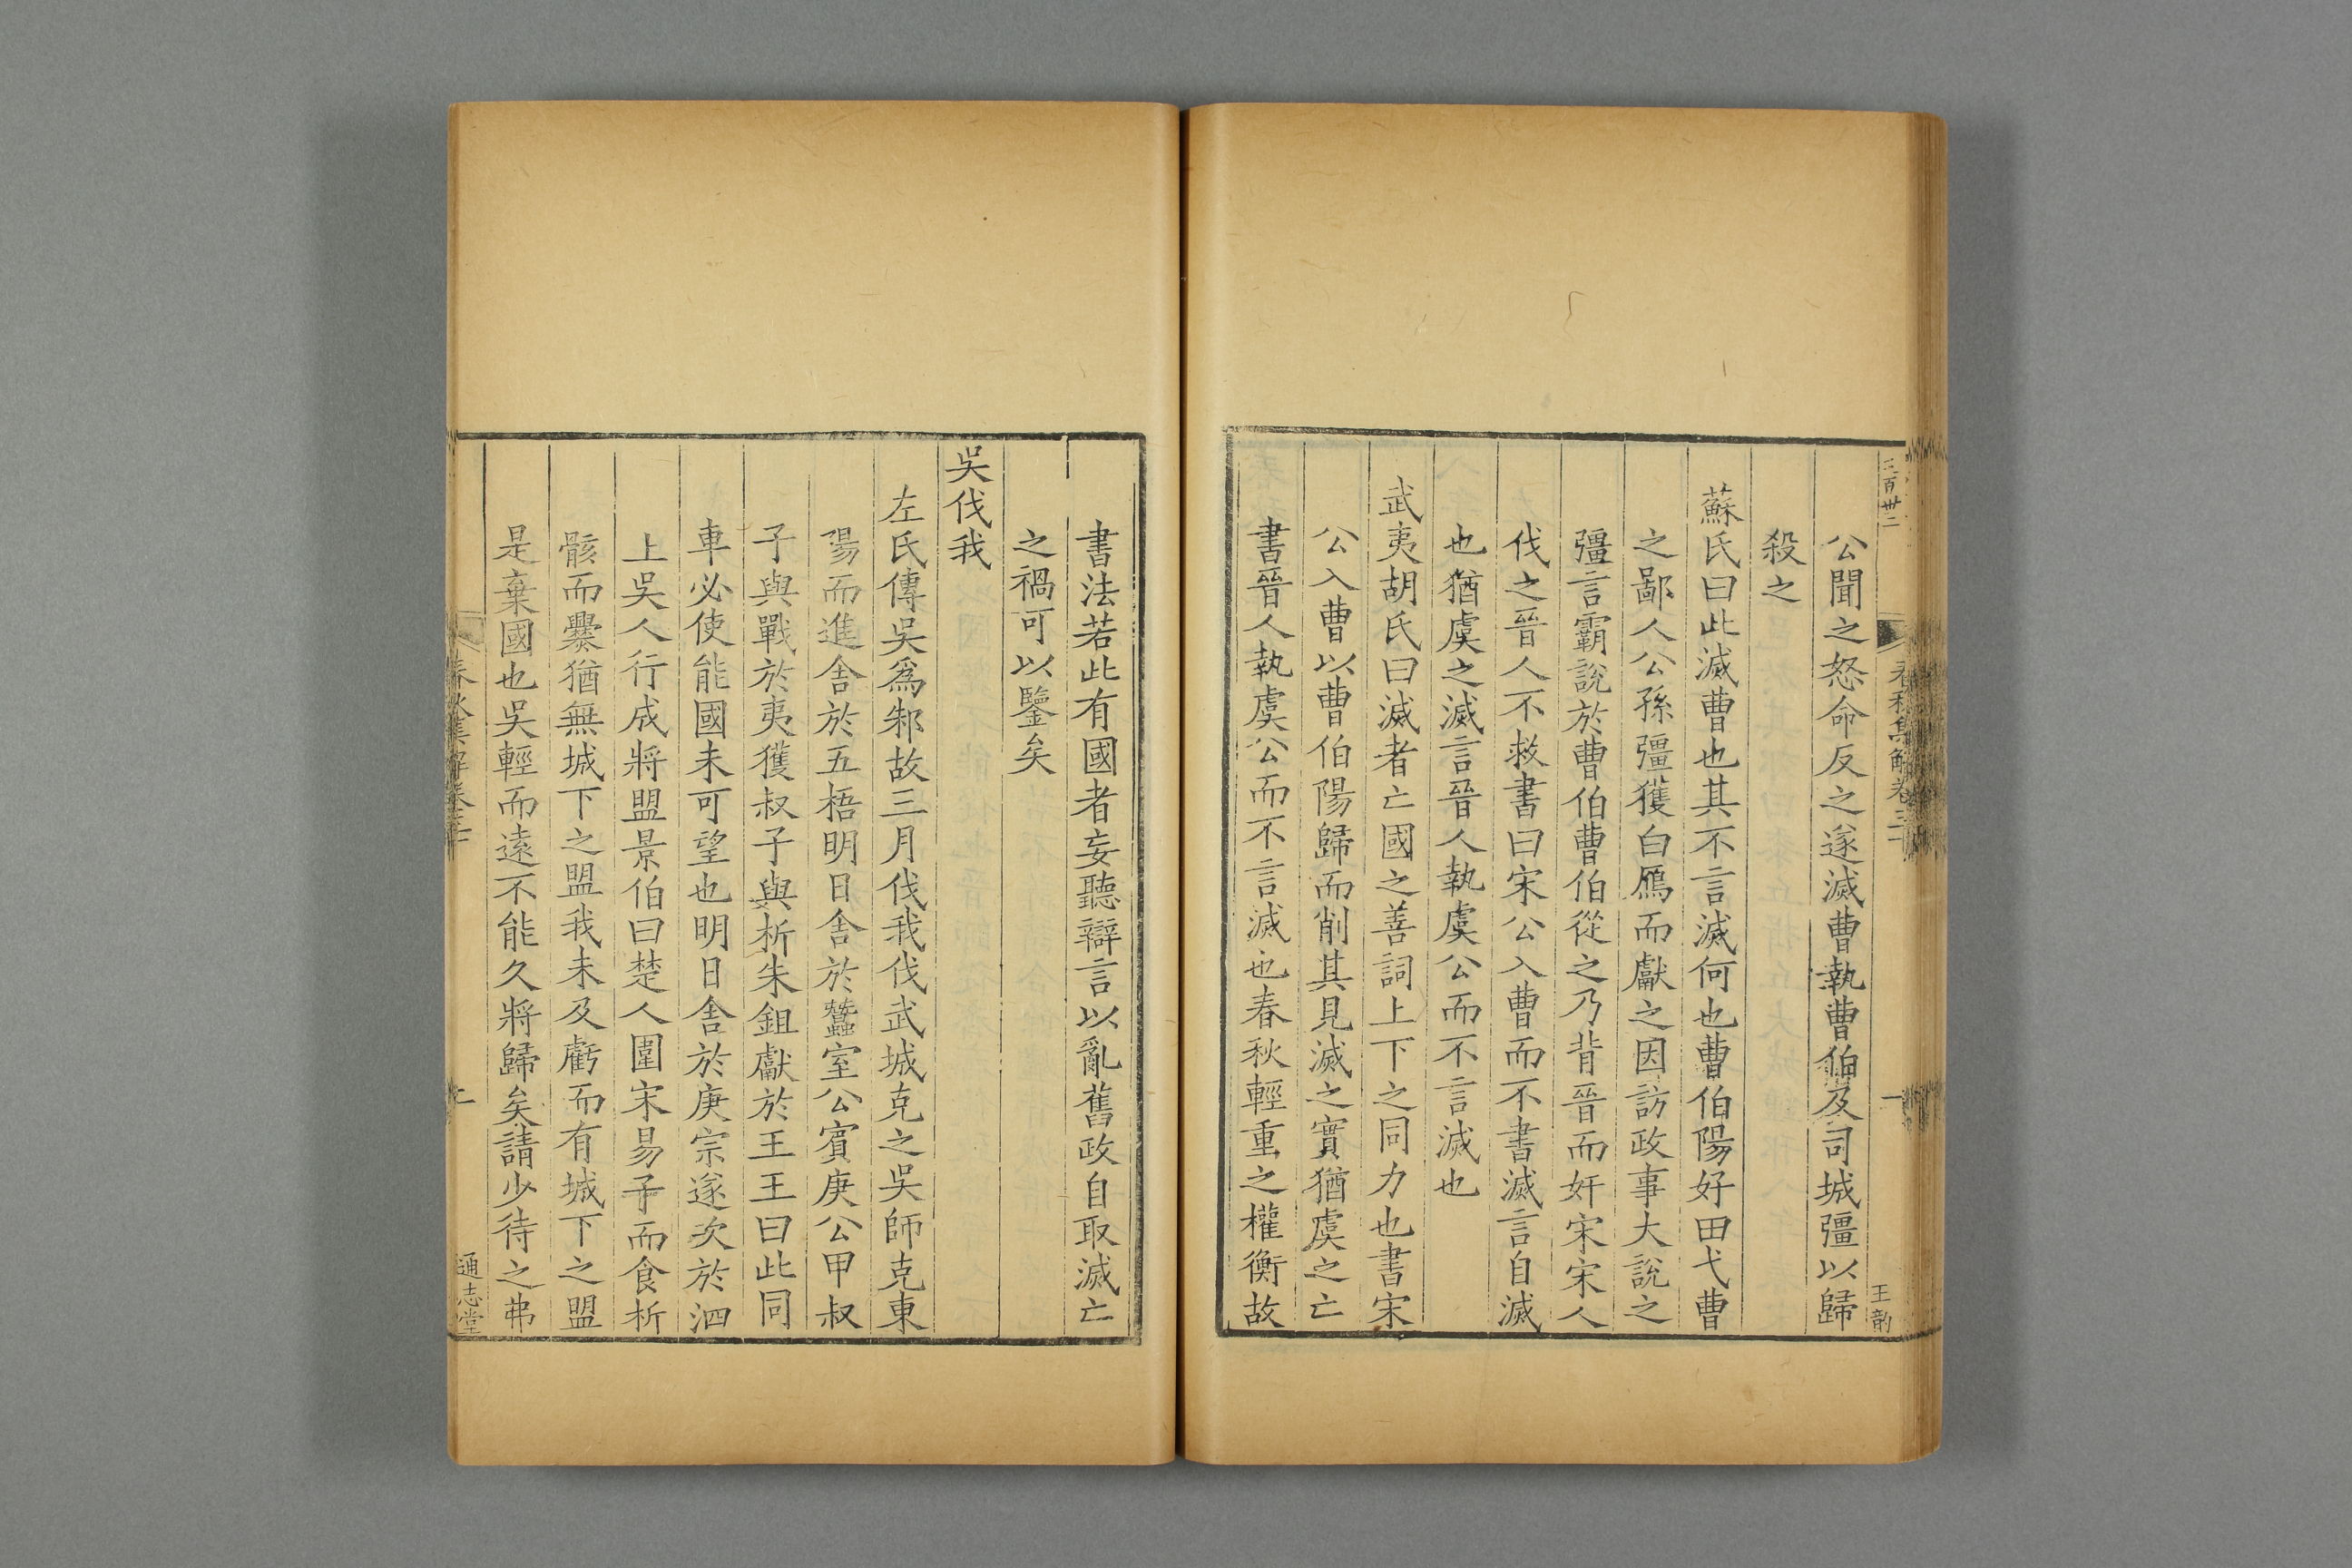 三百卅二
春秋集解卷三十
一
王勻
公聞之怒命反之遂滅曹執曹伯及司城彊以歸
殺之
蘇氏曰此滅曹也其不言滅何也曹伯陽好田弋曹
之鄙人公孫彊獲白鴈而獻之因訪政事大說之
彊言霸說於曹伯曹伯從之乃背晉而奸宋宋人
伐之晉人不救書曰宋公入曹而不書滅言自滅
也猶虞之滅言晉人執虞公而不言滅也
武夷胡氏曰滅者亡國之善詞上下之同力也書宋
公入曹以曹伯陽歸而削其見滅之實猶虞之亡
書晉人執虞公而不言滅也春秋輕重之權衡故
書法若此有國者妄聽辯言以亂舊政自取滅亡
之禍可以鑒矣
吳伐我
左氏傳吳爲邾故三月伐我伐武城克之吳師克東
陽而進舍於五梧明日舍於蠶室公賓庚公甲叔
子與戰於夷獲叔子與析朱鉏獻於王王曰此同
車必使能國未可望也明日舍於庚宗遂次於泗
上吳人行成將盟景伯曰楚人圍宋易子而食析
骸而爨猶無城下之盟我未及虧而有城下之盟
是棄國也吳輕而遠不能久將歸矣請少待之弗
春秋集解卷三十
通志堂